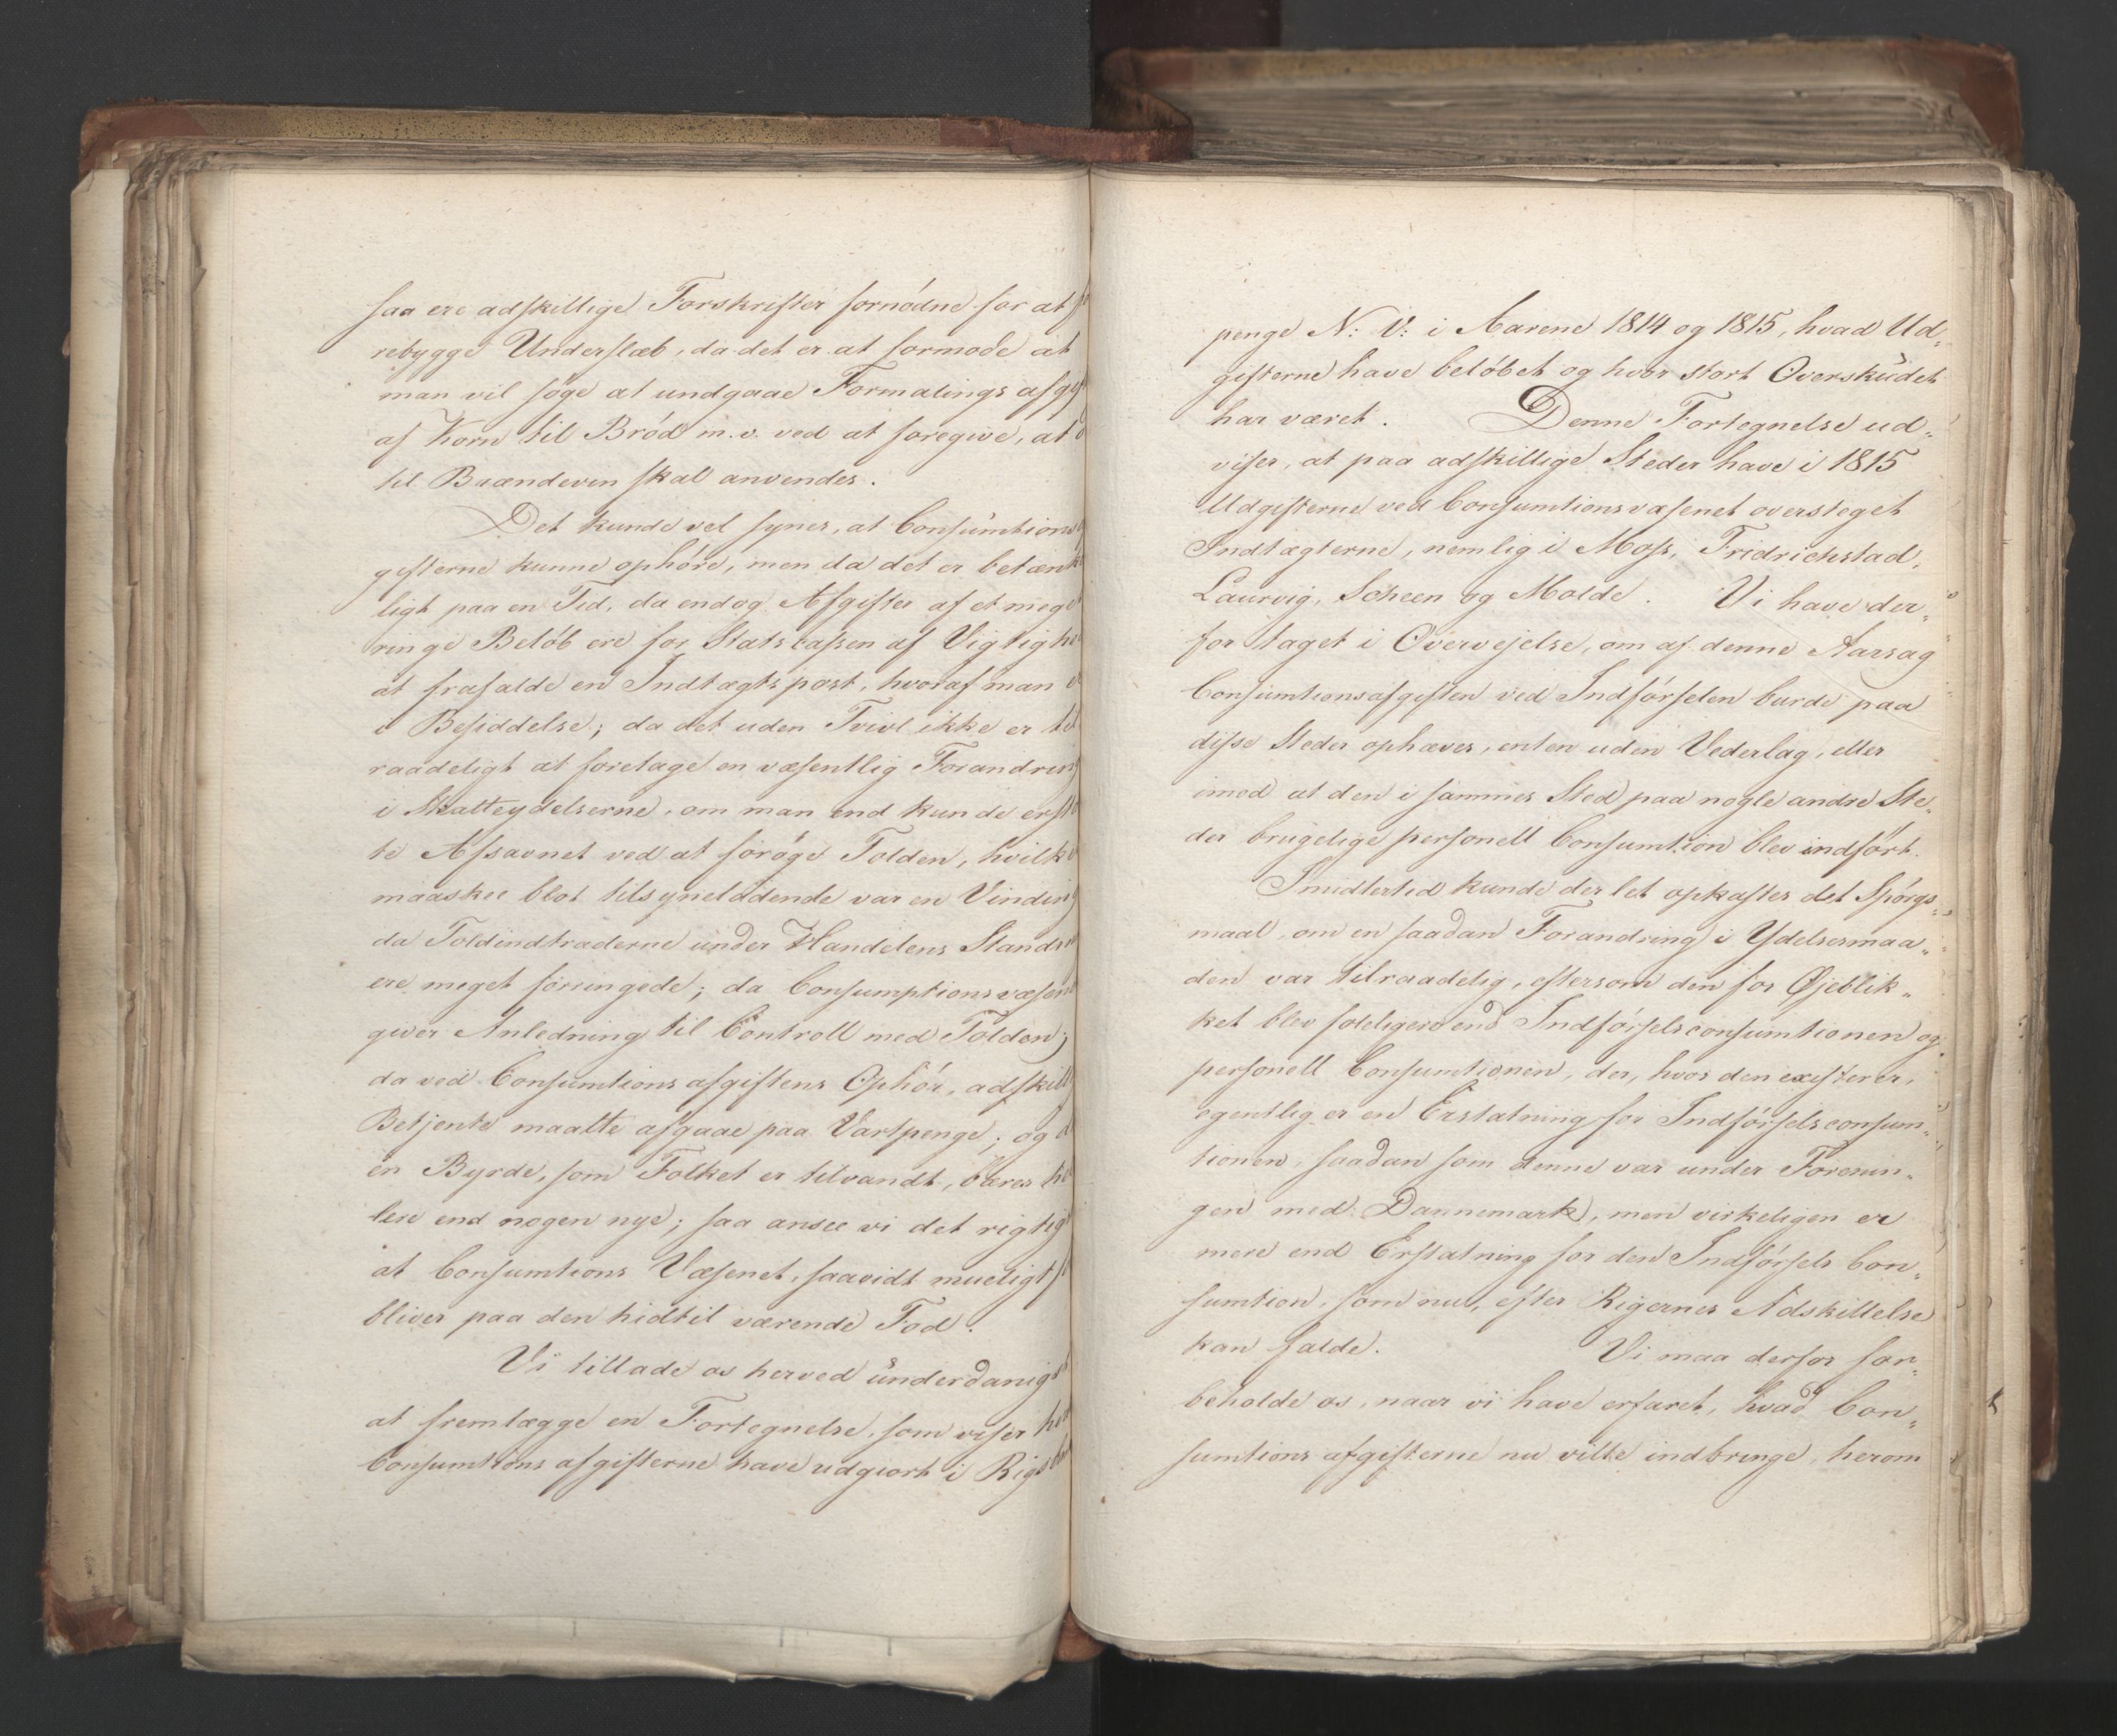 saa ere adskillige Forskrifter fornødne for at fo
rebygge Underslæb, da det er at formode at
man vil søge at undgaae Formalings afgif
af Korn til Brød m.v. ved at foregive, at d
til Brændeviin skal anvendes.
Det kunde vel synes, at Consumtionsa
gifterne kunne ophøre, men da det er betænke
ligt paa en Tid, da endog Afgifter af et meget
ringe Beløb ere for Statscassen af Vigtighed
at frafalde en Indtægtspost, hvoraf man e
i Besiddelse; da det uden Tvivl ikke er til
raadeligt at foretage en væsentlig Forandring
i Skatteydelserne, om man end kunde ersta
te Afsavnet ved at forøge Tolden, hvilke
maaskee blot tilsyneladende var en Vinding
da Toldindtraderne under Handelens Stands
ere meget forringede; da Consumptionsvæsene
giver Anledning til Controll med Tolden;
da ved Consumtionsafgiftens Ophør, adskill
Betjente maatte afgaae paa Vartpenge; og d
en Byrde, som Folket er tilvandt, bæres he
lere end nogen nye; saa ansee vi det rigtigt
at Consumtions Væsenet, saavidt mueligt, f
bliver paa den hidtil værende Fod.
Vi tillade os herved underdanigst
at fremlægge en Fortegnelse, som viser hvad
Consumtions afgifterne have udgiort i Rigsban
penge N: V: i Aarene 1814 og 1815, hvad Ud-
gifterne have beløbet og hvor stort Overskudet
har været. Denne Fortegnelse ud-
viser, at paa adskillige Steder have i 1815
Udgifterne ved Consumtionsvæsenet oversteget
Indtægterne, nemlig i Moss, Fridrichstad,
Laurvig, Scheen og Molde. Vi have der-
for taget i Overvejelse, om af denne Aarsag
Consumtionsafgiften ved Indførselen burde paa
disse Steder ophæves, enten uden Vederlag, eller
imod at den i sammes Sted paa nogle andre Ste-
der brugelige personell Consumtion blev indført.
Imidlertid kunde der let opkastes det Spørgs-
maal, om en saadan Forandring i Ydelsesmaa-
den var tilraadelig, eftersom den for Øjeblik-
ket blev føleligere end Indførselsconsumtionen og
personell Consumtionen, der, hvor den existerer,
egentlig er en Erstatning for Indførselsconsum-
tionen, saadan som denne var under Forenin-
gen med Dannemark, men virkeligen er
mere end Erstatning for den Indførsels Con-
sumtion, som nu, efter Rigernes Adskillelse
kan falde. Vi maa derfor for-
beholde os, naar vi have erfaret, hvad Con-
sumtions afgifterne nu ville indbringe, herom